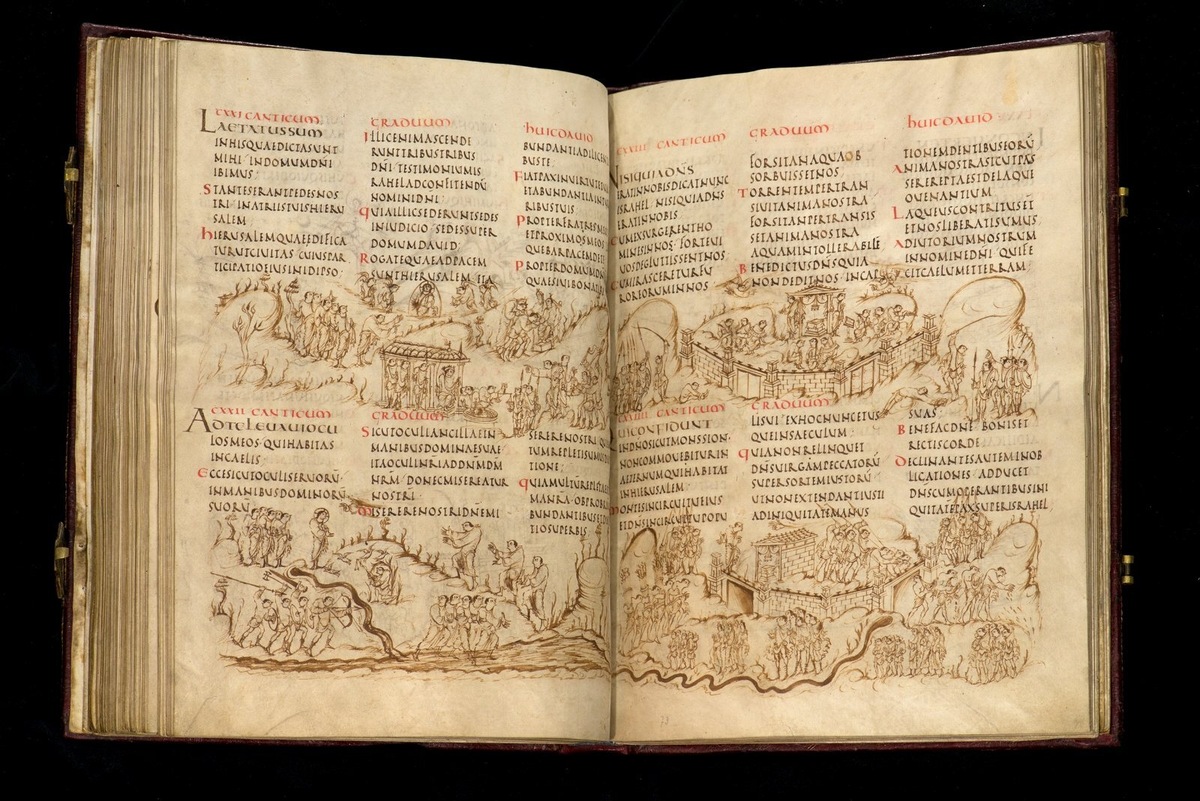 CXXI CANTICUM
LAETATUSSUM
INHISQUAEDICTASUNT
MIHI INDOMUMDNI
IBIMUS
STANTESERANTPEDESNOS
TRI INATRIISTUISHIERU
SALEM
HIERUSALEMQUAEAEDIFICA
TURUTCIVITAS CUIUSPAR
TICIPATIOEIUSINIDIPSO
GRADUUM
ILLICENIMASCENDE
RUNTTRIBUSTRIBUS
DNI TESTIMONIUMIS
RAHELADCONFITENDU
NOMINIDNI
QUIAILLICSEDERUNTSEDES
INIUDICIO SEDESSUPER
DOMUMDAVID
ROGATEQUAEADPACEM
SUNTHIERUSALEM ETA
HUICDAVID
BUNDANTIADILIGEN
BUSTE
FIATPAXINVIRTUTE
ETABUNDANTIAINTU
RIBUSTUIS
PROPTERFRATRESMEOS
ETPROXIMOSMEOS
QUEBARPACEMDETE
PROPTERDOMUMDNI
QUAESIUIBONA
CXXII CANTICUM
ADTELEVAVIOCU
LOSMEOS QUIHABITAS
INCAELIS
ECCESICUTOCULISERUORU
INMANIBUSDOMINORU
SUORU
GRADUUM
SICUTOCULIANCILLAEIN
MANIBUSDOMINAESUAE
ITAOCULINRIADDNMDM
NRM DONECMISEREATUR
NOSTRI
MISERERENOSTRIDNEMI
SERERENOSTRI QU
TUMREPLETISUMUS
TIONE
QUIAMULTUREPLETA
MANRA OBPROB
BUNDANTIBUSET
TIOSUPERBIS
CXXIII CANTICUM
NISIQUIADNS
ERATINNOBISDICATNUNC
ISRAHEL NISIQUIADNS
ERATINNOBIS
CUMEXSURGERENTHO
MINESINNOS FORTEUI
UOSDEGLUTISSENTNOS
CUMIRASCERETURFU
ROREORUMINNOS
GRADUUM
FORSITANAQUAOB
SORBUISSETNOS
TORRENTEMPERTRAN
SIUITANIMANOSTRA
FORSITANPERTRANSIS
SETANIMANOSTRA
AQUAMINTOLLERABILE
BENEDICTUSDNSQUIA
NONDEDITNOS INCAP
HUICDAVID
TIONEMDENTIBUSEORU
ANIMANOSTRASICUTPAS
SEREREPTAESTDELAQUE
OUENANTIUM
LAQUEUSCONTRITUSET
ETNOSLIBERATISUMUS
ADIUTORIUMNOSTRUM
INNOMINEDNI QUIFE
CITCAELUMETTERRAM
CXXIIII CANTICUM
QUICONFIDUNT
INDNOSICUTMONSSION
NONCOMMOUEBITURIN
AETERNUMQUIHABITAT
INHIERUSALEM
MONTESINCIRCUITUEIUS
ETDNSINCIRCUITUPOPU
GRADUUM
LISUI EXHOCNUNCETUS
QUEINSAECULUM
QUIANONRELINQUET
DNSUIRGAMPECCATORU
SUPERSORTEMIUSTORU
UTNONEXTENDANTIUSTI
ADINIQUITATEMANUS
SUAS
BENEFACDNE BONISET
RECTISCORDE
DECLINANTESAUTEMINOB
LIGATIONES ADDUCET
DNSCUMOPERANTIBUSINI
QUITATEPAXSUPERISRAHEL